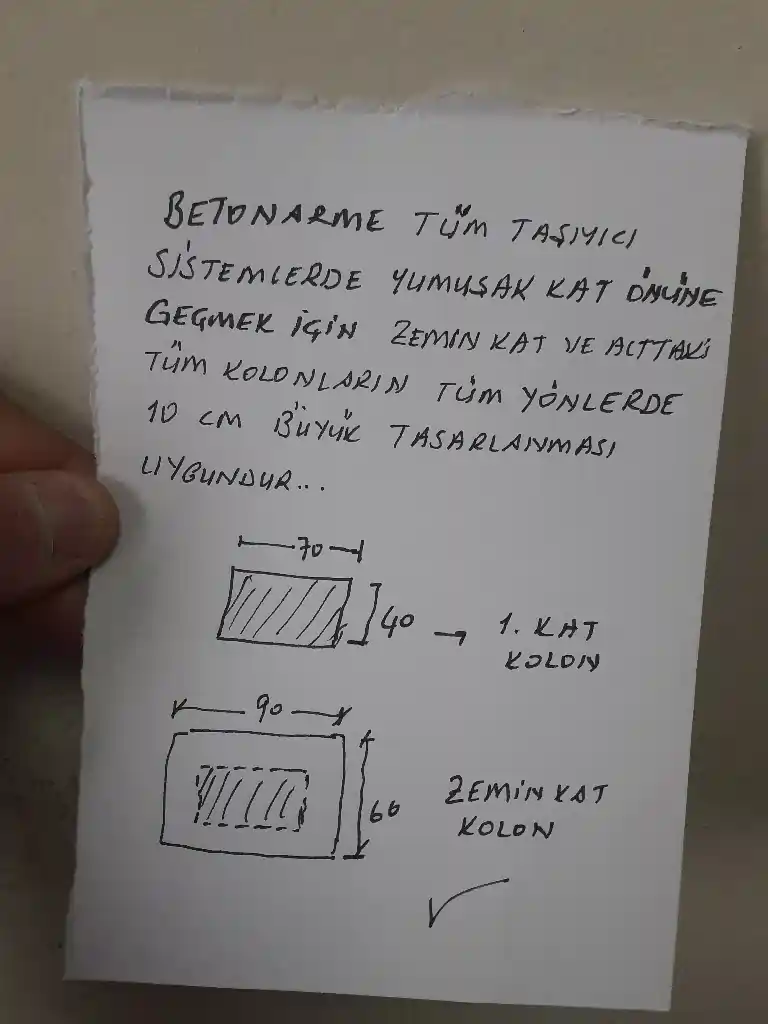 BETONARME TÜM TAŞIYICI
SİSTEMLERDE YUMUŞAK KAT ÖNÜNE
GEÇMEK İÇİN ZEMİN KAT VE ALTTAKİ
TÜM KOLONLARIN TÜM YÖNLERDE
10 CM BÜYÜK TASARLANMASI
UYGUNDUR...
70
40 → 1. KAT
KOLON
90
60 ZEMİN KAT
KOLON